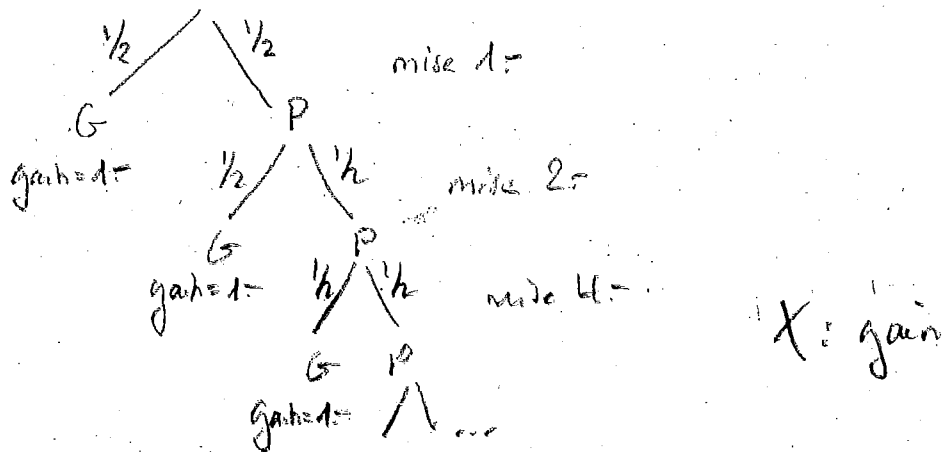 1/2 1/2 mise 1.-
G P
gain=1.- 1/2 1/2 mise 2.-
G P
gain=1.- 1/2 1/2 mise 4.-
X : gain
G P
gain=1.- ...